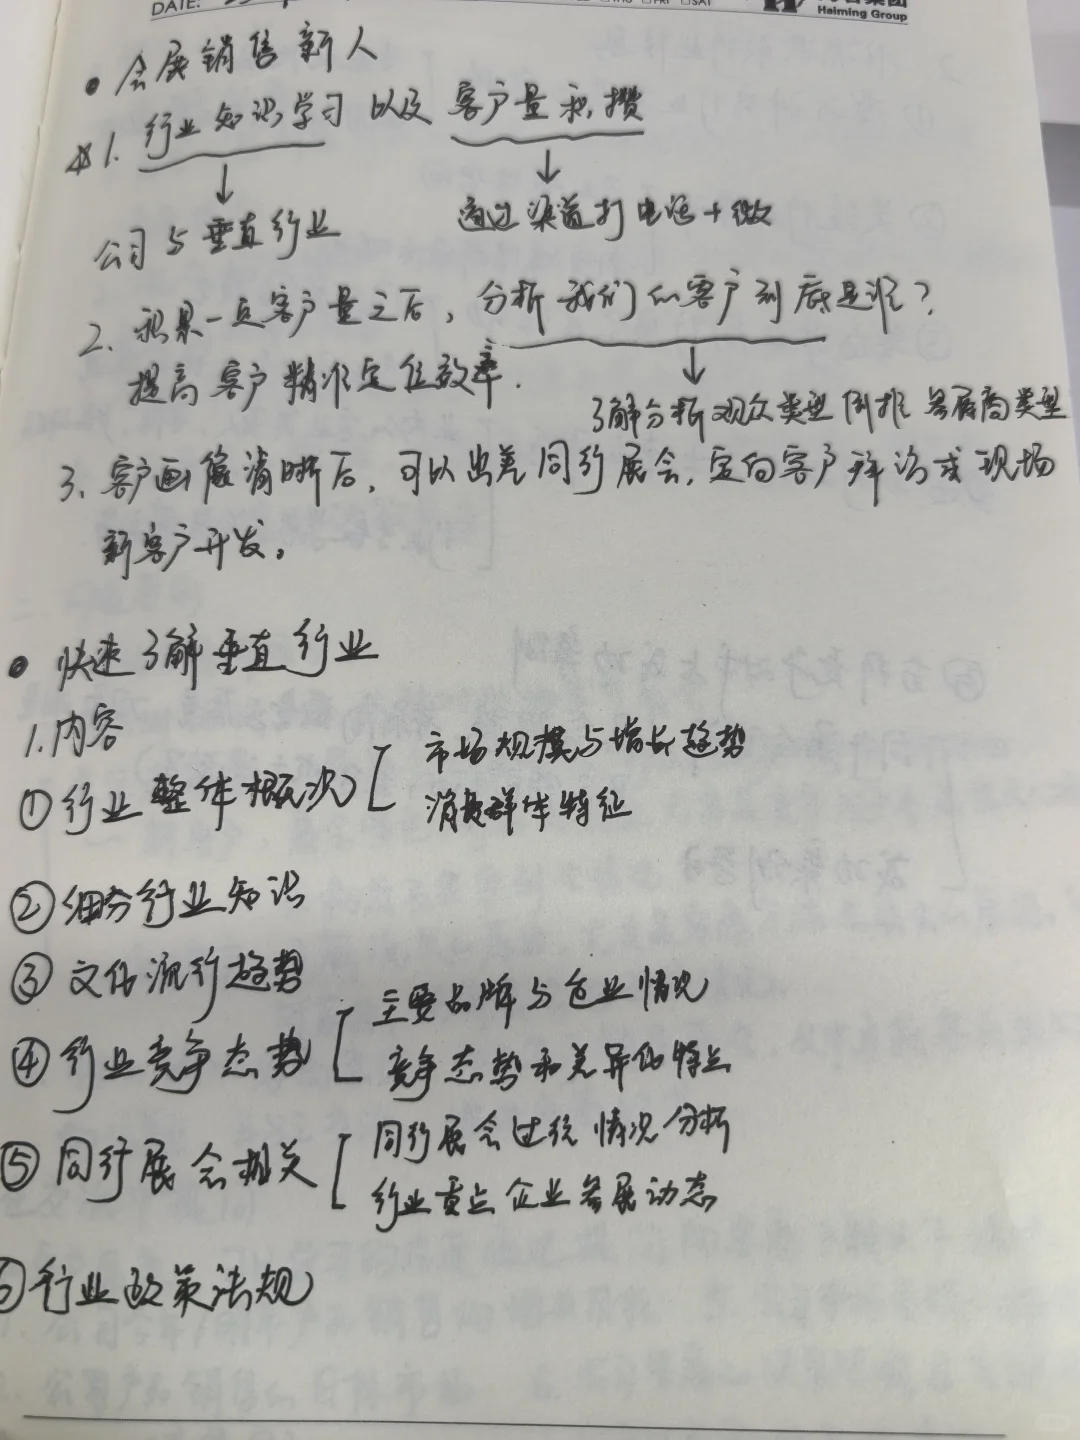 DATE:
THU FRI SAT
Haiming Group
会展销售新人
1. 行业知识学习以及客户量积攒
公司与垂直行业
通过渠道打电话+微
2. 积累一点客户量之后，分析我们的客户到底是谁？
提高客户精准定位效率.
了解分析观众类型倒推参展商类型
3. 客户画像清晰后，可以出差同行展会，定向客户拜访或现场
新客户开发。
快速了解垂直行业
1.内容
①行业整体概况
市场规模与增长趋势
消费群体特征
②细分行业知识
③文化流行趋势
④行业竞争态势
主要品牌与企业情况
竞争态势和差异化特点
⑤同行展会相关
同行展会过往情况分析
行业重点企业参展动态
行业政策法规